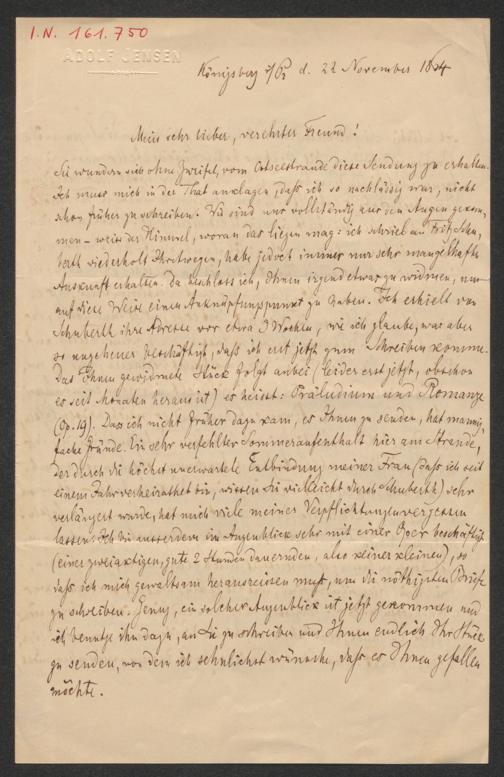 I.N. 161.750
ADOLF JENSEN
Königsberg i/Pr d. 22 November 1864
Mein sehr lieber, verehrter Freund!
Sie wundern sich ohne Zweifel, vom Ostseestrande diese Sendung zu erhalten.
Ich muss mich in der That anklagen, daß ich so nachlässig war, nicht
schon früher zu schreiben. Wir sind uns vollständig aus den Augen gekom-
men – weiss der Himmel, woran das liegen mag: ich schrieb an Fritz Schu-
berth wiederholt Ihretwegen, habe jedoch immer nur sehr mangelhafte
Auskunft erhalten. Da beschloss ich, Ihnen irgend etwas zu widmen, um
auf diese Weise einen Anknüpfungspunkt zu haben. Ich erhielt von
Schuberth ihre Adresse vor etwa 9 Wochen, wie ich glaube, war aber
so ungeheuer beschäftigt, daß ich erst jetzt zum Schreiben komme.
Das Ihnen gewidmete Stück folgt anbei (leider erst jetzt, obschon
es seit Monaten heraus ist) es heisst: Präludium und Romanze
(Op. 19). Dass ich nicht früher dazu kam, es Ihnen zu senden, hat mannig-
fache Gründe. Ein sehr verfehlter Sommeraufenthalt hier am Strande,
der durch die höchst unerwartete Entbindung meiner Frau (daß ich seit
einem Jahr verheirathet bin, wissen Sie vielleicht durch Schuberth) sehr
verlängert wurde, hat mich viele meiner Verpflichtungen vergessen
lassen. Ich bin ausserdem im Augenblick sehr mit einer Oper beschäftigt
(einer zweiaktigen, gute 2 Stunden dauernden, also keiner kleinen), so
daß ich mich gewaltsam herausreissen muß, um die nöthigsten Briefe
zu schreiben. Genug, ein solcher Augenblick ist jetzt gekommen und
ich benutze ihn dazu, an Sie zu schreiben und Ihnen endlich Ihr Stück
zu senden, von dem ich sehnlichst wünsche, daß es Ihnen gefallen
möchte.